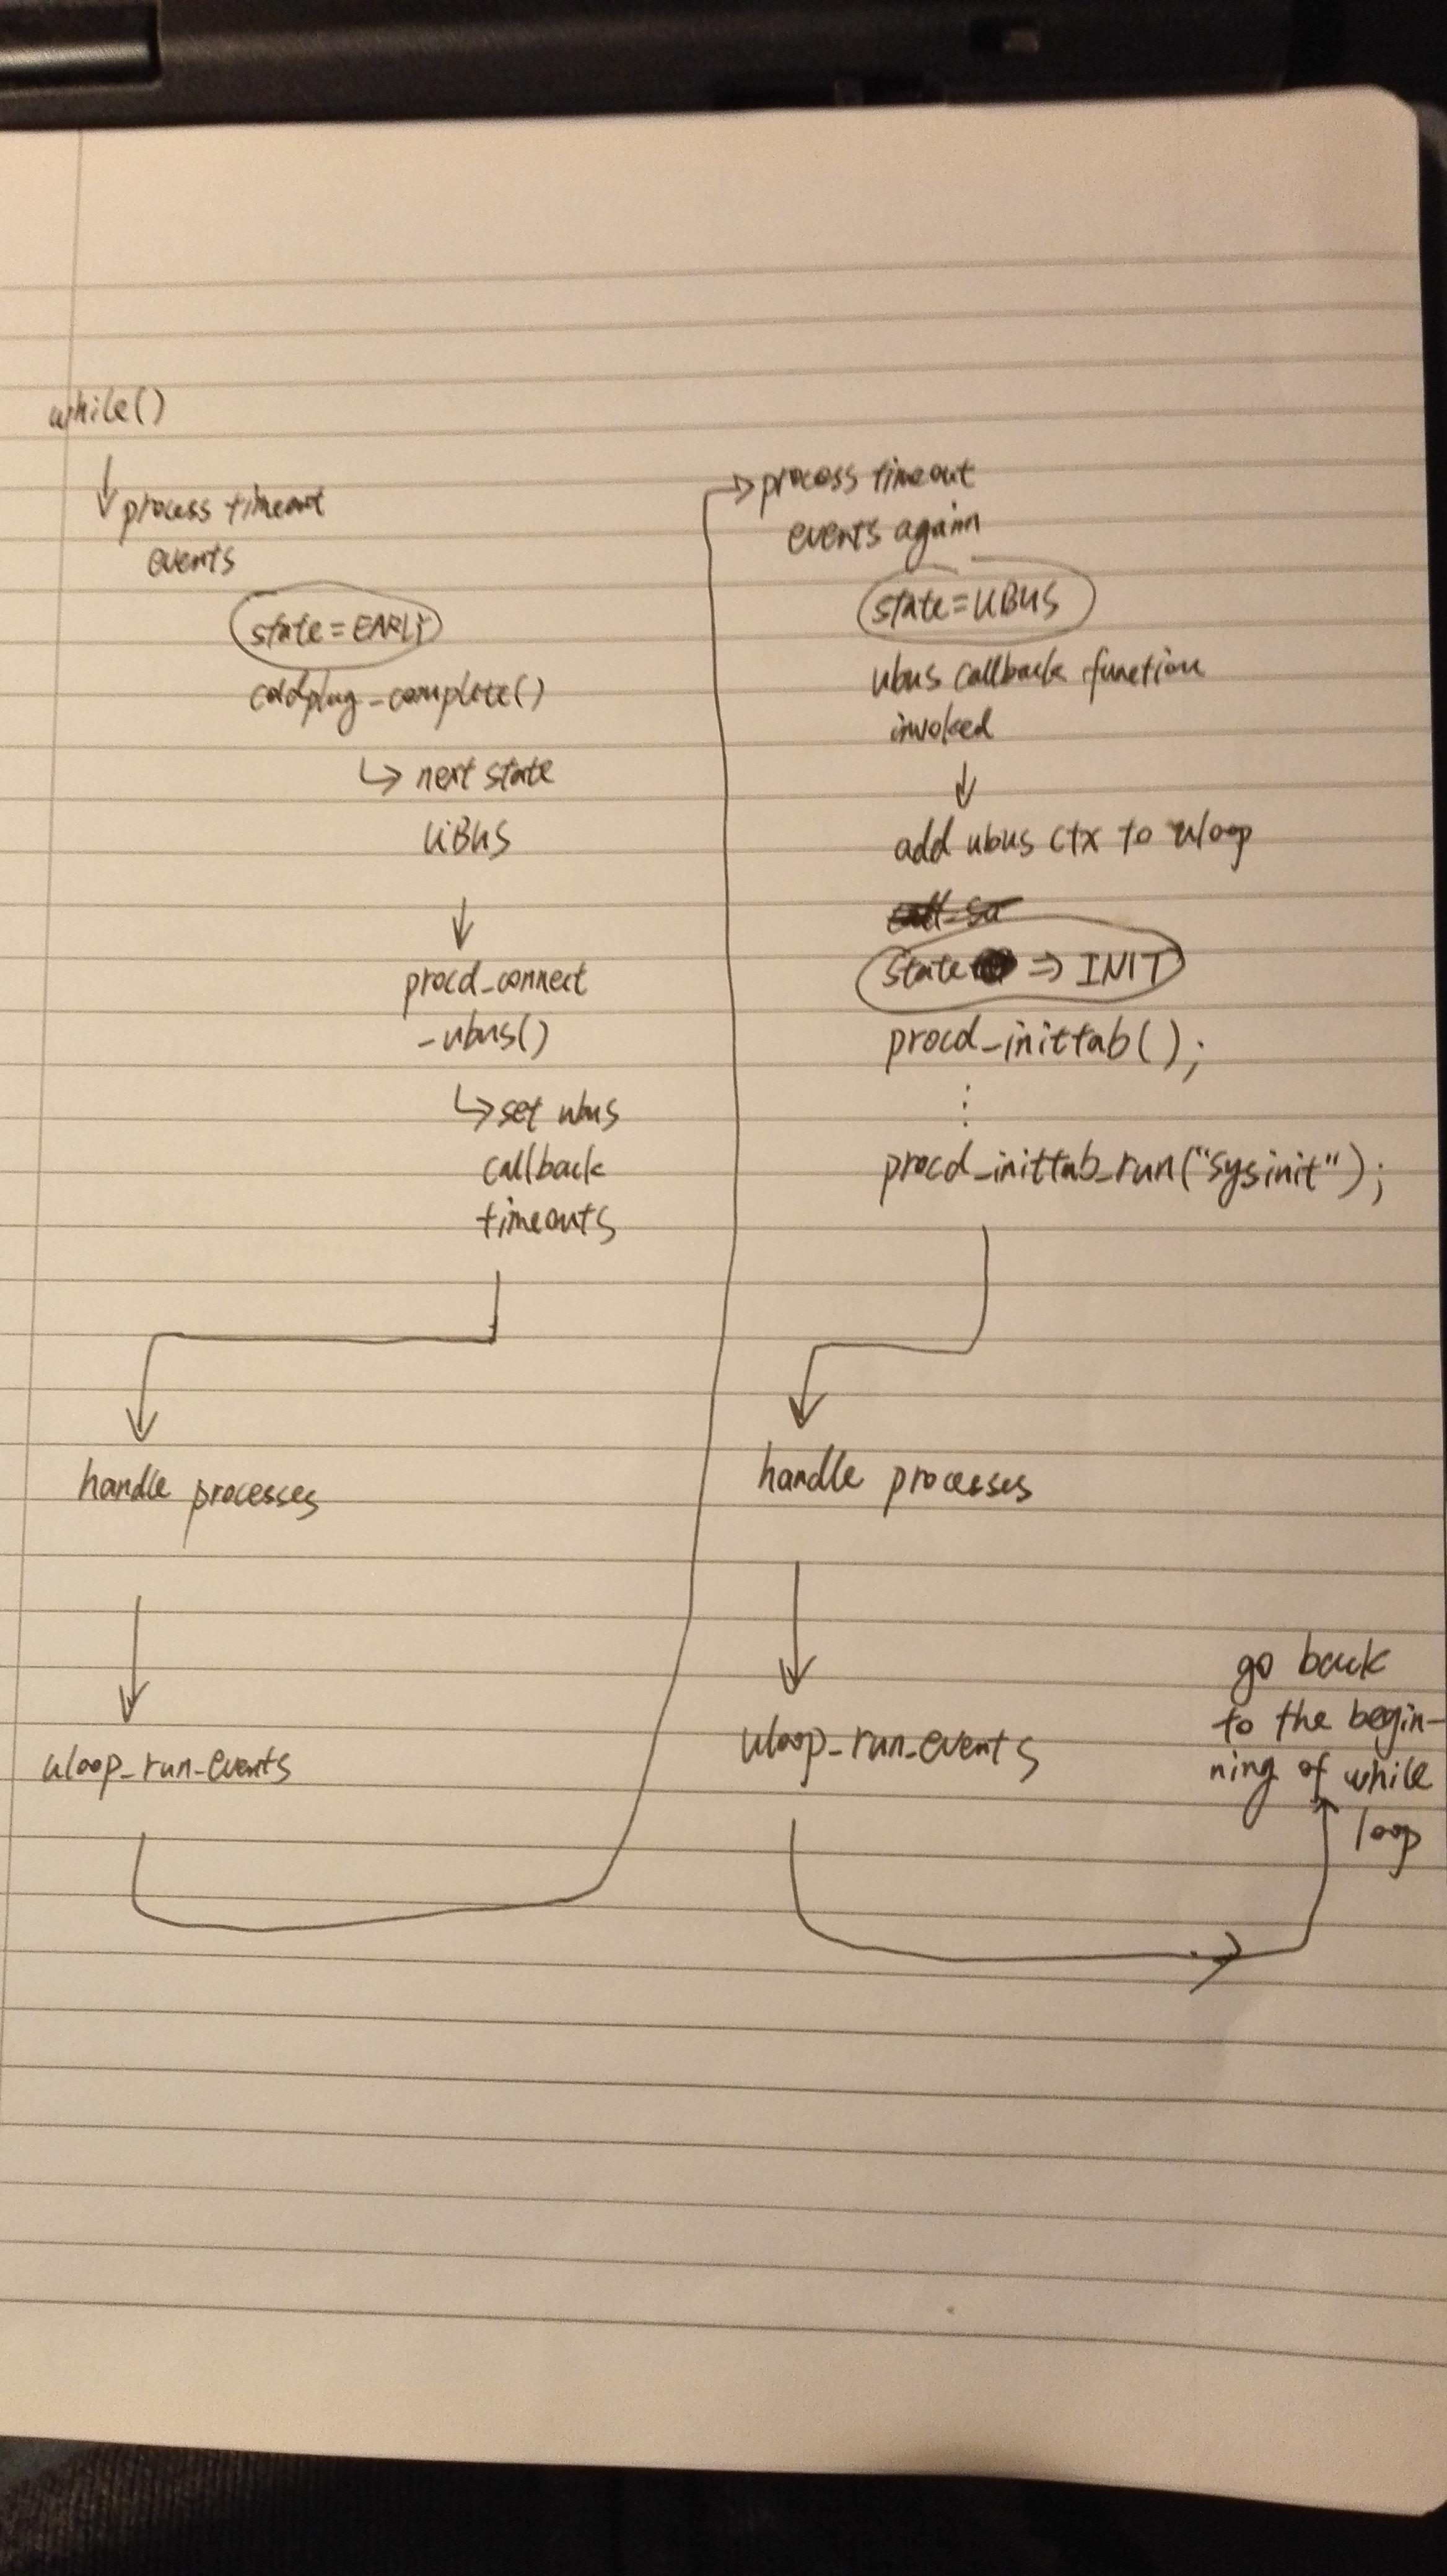 while()
process timeout
events
state=EARLY
coldplug_complete()
next state
UBUS
procd_connect
_ubus()
set ubus
callback
timeouts
handle processes
uloop_run_events
process timeout
events againn
state=UBUS
ubus callback function
invoked
add ubus ctx to uloop
state => INIT
procd_inittab();
⋮
procd_inittab_run("sysinit");
handle processes
uloop_run_events
go back
to the begin-
ning of while
loop